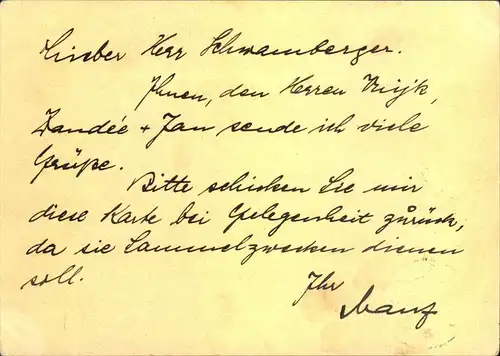 Lieber Herr Schwamberger.
Ihnen, den Herren
Dandée + Jan sende ich viele
Grüße.
Bitte schicken Sie mir
diese Karte bei Gelegenheit zurück,
da sie Sammelzwecken dienen
soll.
Ihr